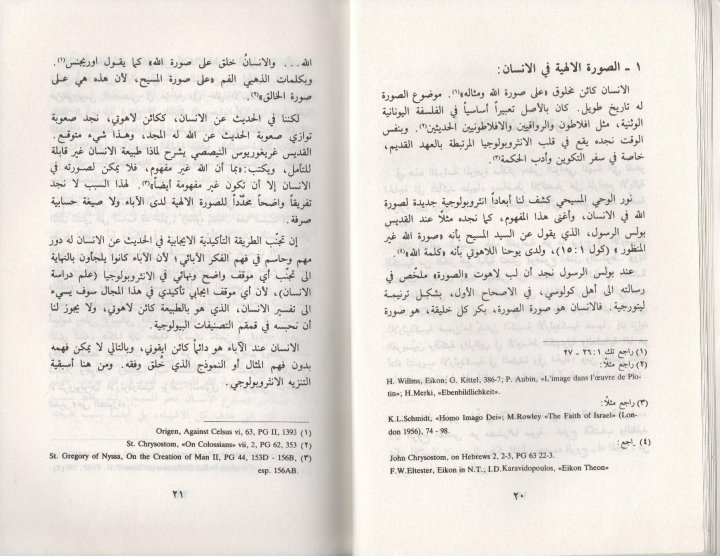 ١ ـ الصورة الالهية في الانسان:
الانسان كائن مخلوق «على صورة الله ومثاله»(١). موضوع الصورة
له تاريخ طويل. كان بالأصل تعبيراً أساسياً في الفلسفة اليونانية
الوثنية، مثل افلاطون والرواقيين والافلاطونيين الحديثين(٢). وبنفس
الوقت نجده يقع في قلب الانثروبولوجيا المرتبطة بالعهد القديم،
خاصة في سفر التكوين وأدب الحكمة(٣).
نور الوحي المسيحي كشف لنا أبعاداً انثروبولوجية جديدة لصورة
الله في الانسان، وأغنى هذا المفهوم، كما نجده مثلاً عند القديس
بولس الرسول، الذي يقول عن السيد المسيح بأنه «صورة الله غير
المنظور» (كول ١:١٥)، ولدى يوحنا اللاهوتي بأنه «كلمة الله»(٤).
عند بولس الرسول نجد أن لب لاهوت «الصورة» ملخّص في
رسالته الى أهل كولوسي، في الاصحاح الأول، بشكل ترنيمة
ليتورجية. فالانسان هو صورة الصورة، بكر كل خليقة، هو صورة
(١) راجع تك ١:٢٦ ـ ٢٧
(٢) راجع مثلاً:
H. Willms, Eikon; G. Kittel, 386-7; P. Aubin, «L'image dans l'œuvre de Plo-
tin»; H.Merki, «Ebenbildlichkeit».
(٣) راجع مثلاً:
K.L.Schmidt, «Homo Imago Dei»; M.Rowley «The Faith of Israel» (Lon-
don 1956), 74 - 98.
(٤) راجع:
John Chrysostom, on Hebrews 2, 2-3, PG 63 22-3.
F.W.Eltester, Eikon in N.T., I.D.Karavidopoulos, «Eikon Theon»
٢٠
الله... والانسانُ خلق على صورة الله» كما يقول اوريجنس(١).
وبكلمات الذهبي الفم «على صورة المسيح، لأن هذه هي على
صورة الخالق»(٢).
لكننا في الحديث عن الانسان، ككائن لاهوتي، نجد صعوبة
توازي صعوبة الحديث عن الله له المجد، وهذا شيء متوقع.
القديس غريغوريوس النيصصي يشرح لماذا طبيعة الانسان غير قابلة
للتأمل، ويكتب: «بما أن الله غير مفهوم، فلا يمكن لصورته في
الانسان إلا أن تكون غير مفهومة أيضاً»(٣). لهذا السبب لا نجد
تفريقاً واضحاً محدّداً للصورة الالهية لدى الآباء ولا صيغة حسابية
صرفة.
إن تجنّب الطريقة التأكيدية الايجابية في الحديث عن الانسان له دور
مهم وحاسم في فهم الفكر الآبائي؛ لأن الآباء كانوا يلجأون بالنهاية
الى تجنّب أي موقف واضح ونهائي في الانثروبولوجيا (علم دراسة
الانسان)، لأن أي موقف ايجابي تأكيدي في هذا المجال سوف يسيء
الى تفسير الانسان، الذي هو بالطبيعة كائن لاهوتي، ولا يجوز لنا
أن نحبسه في قمقم التصنيفات البيولوجية.
الانسان عند الآباء هو دائماً كائن ايقوني، وبالتالي لا يمكن فهمه
بدون فهم المثال أو النموذج الذي خُلق وفقه. ومن هنا أسبقية
التنزيه الانثروبولوجي.
(١) Origen, Against Celsus vi, 63, PG II, 1393
(٢) St. Chrysostom, «On Colossians» vii, 2, PG 62, 353
(٣) St. Gregory of Nyssa, On the Creation of Man II, PG 44, 153D - 156B,
esp. 156AB.
٢١